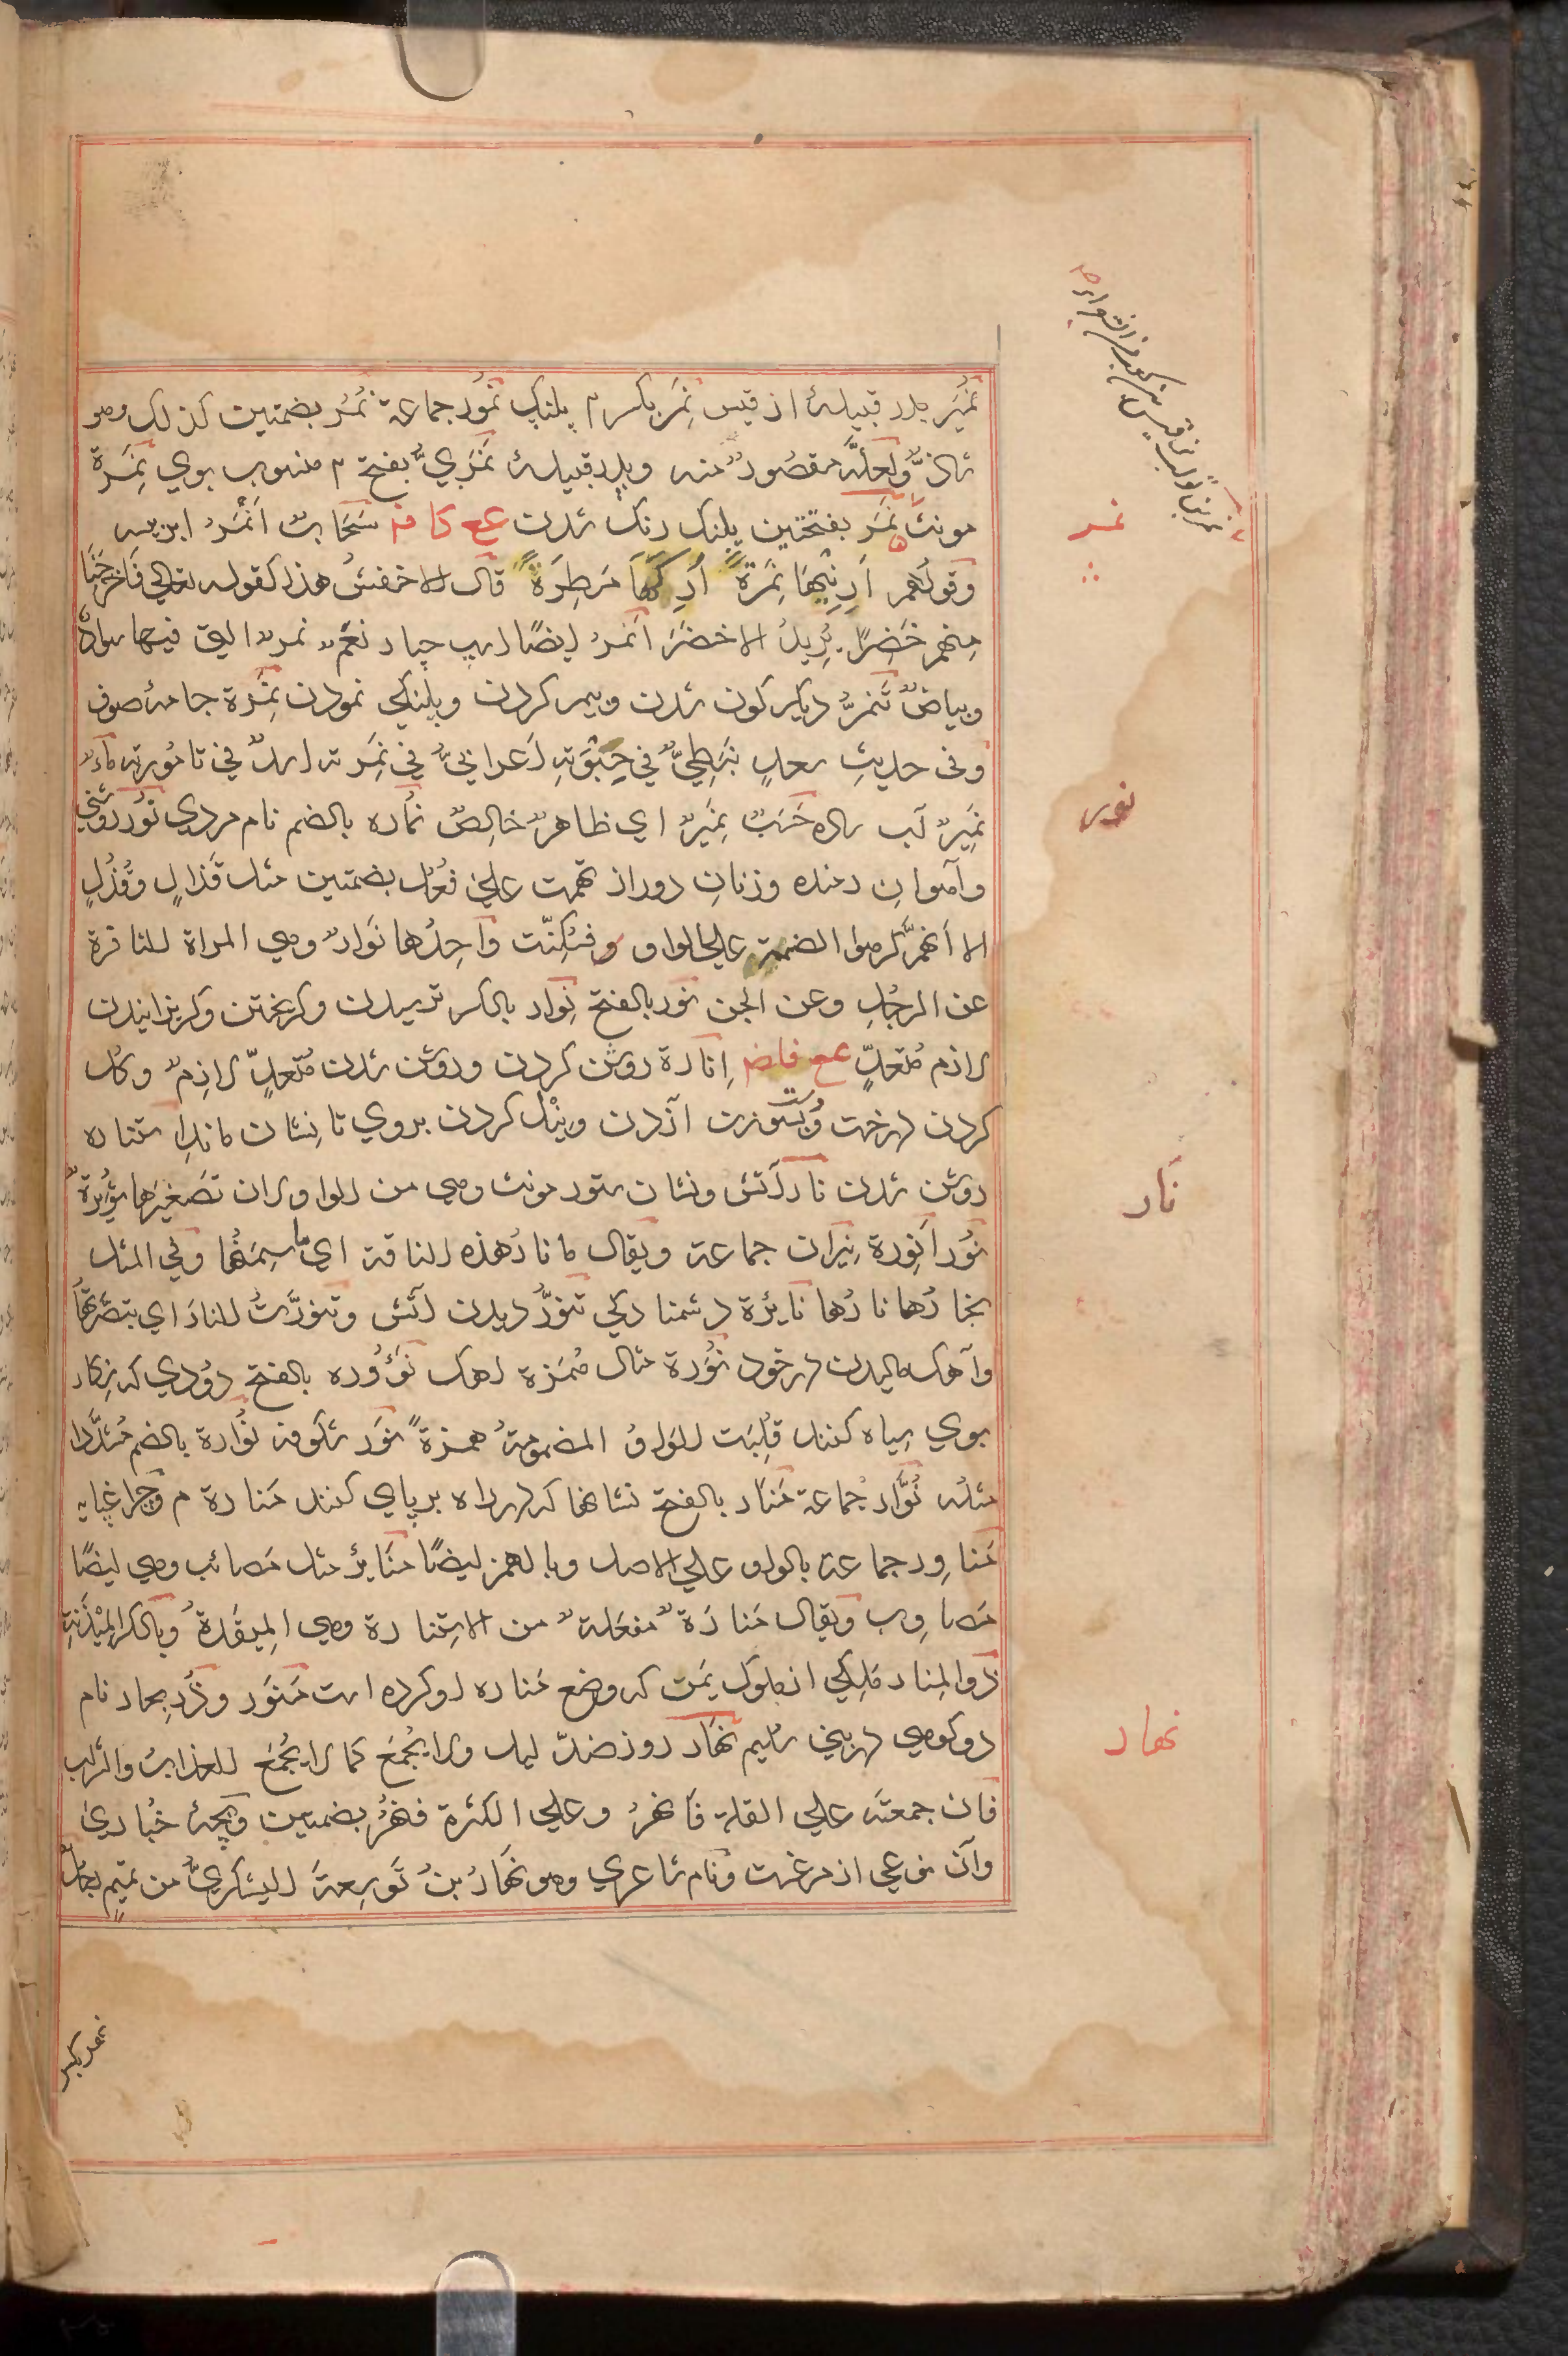 نُمَیر پدر قبیلهٔ از قیس نَمِر بکسر م پلنک نُمُور جماعة نُمُر بضمتین کذلک وهو
شاذٌّ ولعلّه مقصورٌ منه و پدر قبیلهٔ نَمَرِيٌّ بفتح م منسوب بوي نَمِرَة
مونث نَمَر بفتحتین پلنک رنک شدن عح کا ف سَحَابٌ اَنْمَرُ ابر پیسه
وقولُهم اَرِنِیْهَا نَمِرَةً اُرِکَهَا مَطِرَةً قال الاخفشُ هذا کقوله تعالي فَاَخرَجنَا
مِنهم خَضِرًا یُرِیدُ الاخضَرَ اَنمَرُ ایضًا اسپ چپار نَعَمٌ نمرٌ التي فیها سوادٌ
وبیاضٌ تَنَمُّرٌ دیکر کون شدن و پیر کردن و پلنکي نمودن نَمِرَة جامهٔ صوف
وفي حدیثِ سعدٍ نَبَطِيٌّ في حِبْوَتِهِ اَعرابيٌّ في نَمِرَتِه اسدٌ في تامُورتِه مَاءٌ
نَمِیرٌ آب ساده حَسَبٌ نَمِیرٌ اي ظاهرٌ خالِصٌ نُماره بالضم نام مردي نُور روشني
وآهوانِ رمنده و زنانِ دور از تهمت علي فُعُل بضمتین مثل قَذالٍ وقُذُلٍ
الا اَنّهم کرهوا الضمة علي الواو و فسُکِنّت واحِدُها نَوارٌ وهي المراة النافرة
عن الرجُلِ وعن الجن نَور بالفتح نِوار بالکسر ترسیدن و کریختن و کریزانیدن
لازم مُتعدٍّ عح فاض اِنارة روشن کردن و روشن شدن مُتعدٍّ لازِمٌ و کُل
کردن درخت و پوست آزدن و نیل کردن بروي تا نشان ماند استناره
روشن شدن نار آتش و نشان ستور مونث وهي من الواو لان تصغیرها نُوَیْرَةٌ
نُور اَنوِرة نِیران جماعة ویقال ما نارُ هذه الناقة اي ما سِمَتُها وفي المثل
نِجارُها نارُها نایِرَة دشمناد کي تَنَوُّر دیدن آتش وتنوَّرتُ النارَ اي تبصّرتُها
وآهک مالیدن بر خود نُورة مثال مُمَرَة اهک نَؤُوره بالفتح دُودي که نکار
بوي سیاه کنند قُلِبَت الواوُ المضمومةُ همزةً نَور شکوفه نُوّارة بالضم مُشدَّدا
مثله نُوّار جُماعة مَنار بالفتح نشانها که در راه بر پاي کنند مَنارة م و چراغ پایه
مَناوِر جماعة بالواو علي الاصل وبالهمز ایضًا مَنائِر مثل مَصائب وهي ایضًا
مَصاوِب ویقال مَنارَةٌ مَفعَلَةٌ من الاستنارة وهي المِیقَدةُ وبالکسر المِیْذَنَة
ذو المنار مَلِکي از ملوک یَمَن که وضع مَناره او کرده است مَنوَر
دو کوهي در بني سُلیم نهار روز ضدّ لیل ولا یُجمَع کما لا یُجمَع العذابُ والسراب
فان جمعتَه علي القلة فاَنهُرٌ وعلي الکثرة فنُهُرٌ بضمتین و بچهٔ حُبَاري
وآن نوعي از مرغست و نام شاعري وهو نَهارُ بنُ تَوسِعةَ الیشکريُّ من تمیم
نمر
نور
نار
نهار